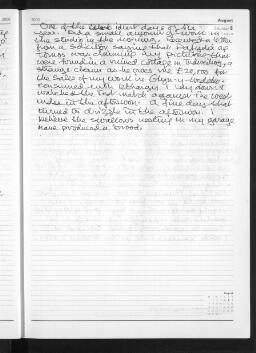 August
One of the idlest days of the
year. Did a small amount of work in
the studio in the morning. Received a letter
from a solicitor saying that
was claiming my pictures that
were found in a ruined cottage in a
strange claim as he owes me £20,000 for
the sales of my work in
consumed with lethargy I lay down &
watched the Test match against the West
Indies in the afternoon. A fine day that
turned to drizzle in the afternoon. I
believe the swallows nesting in my garage
have produced a brood.
August